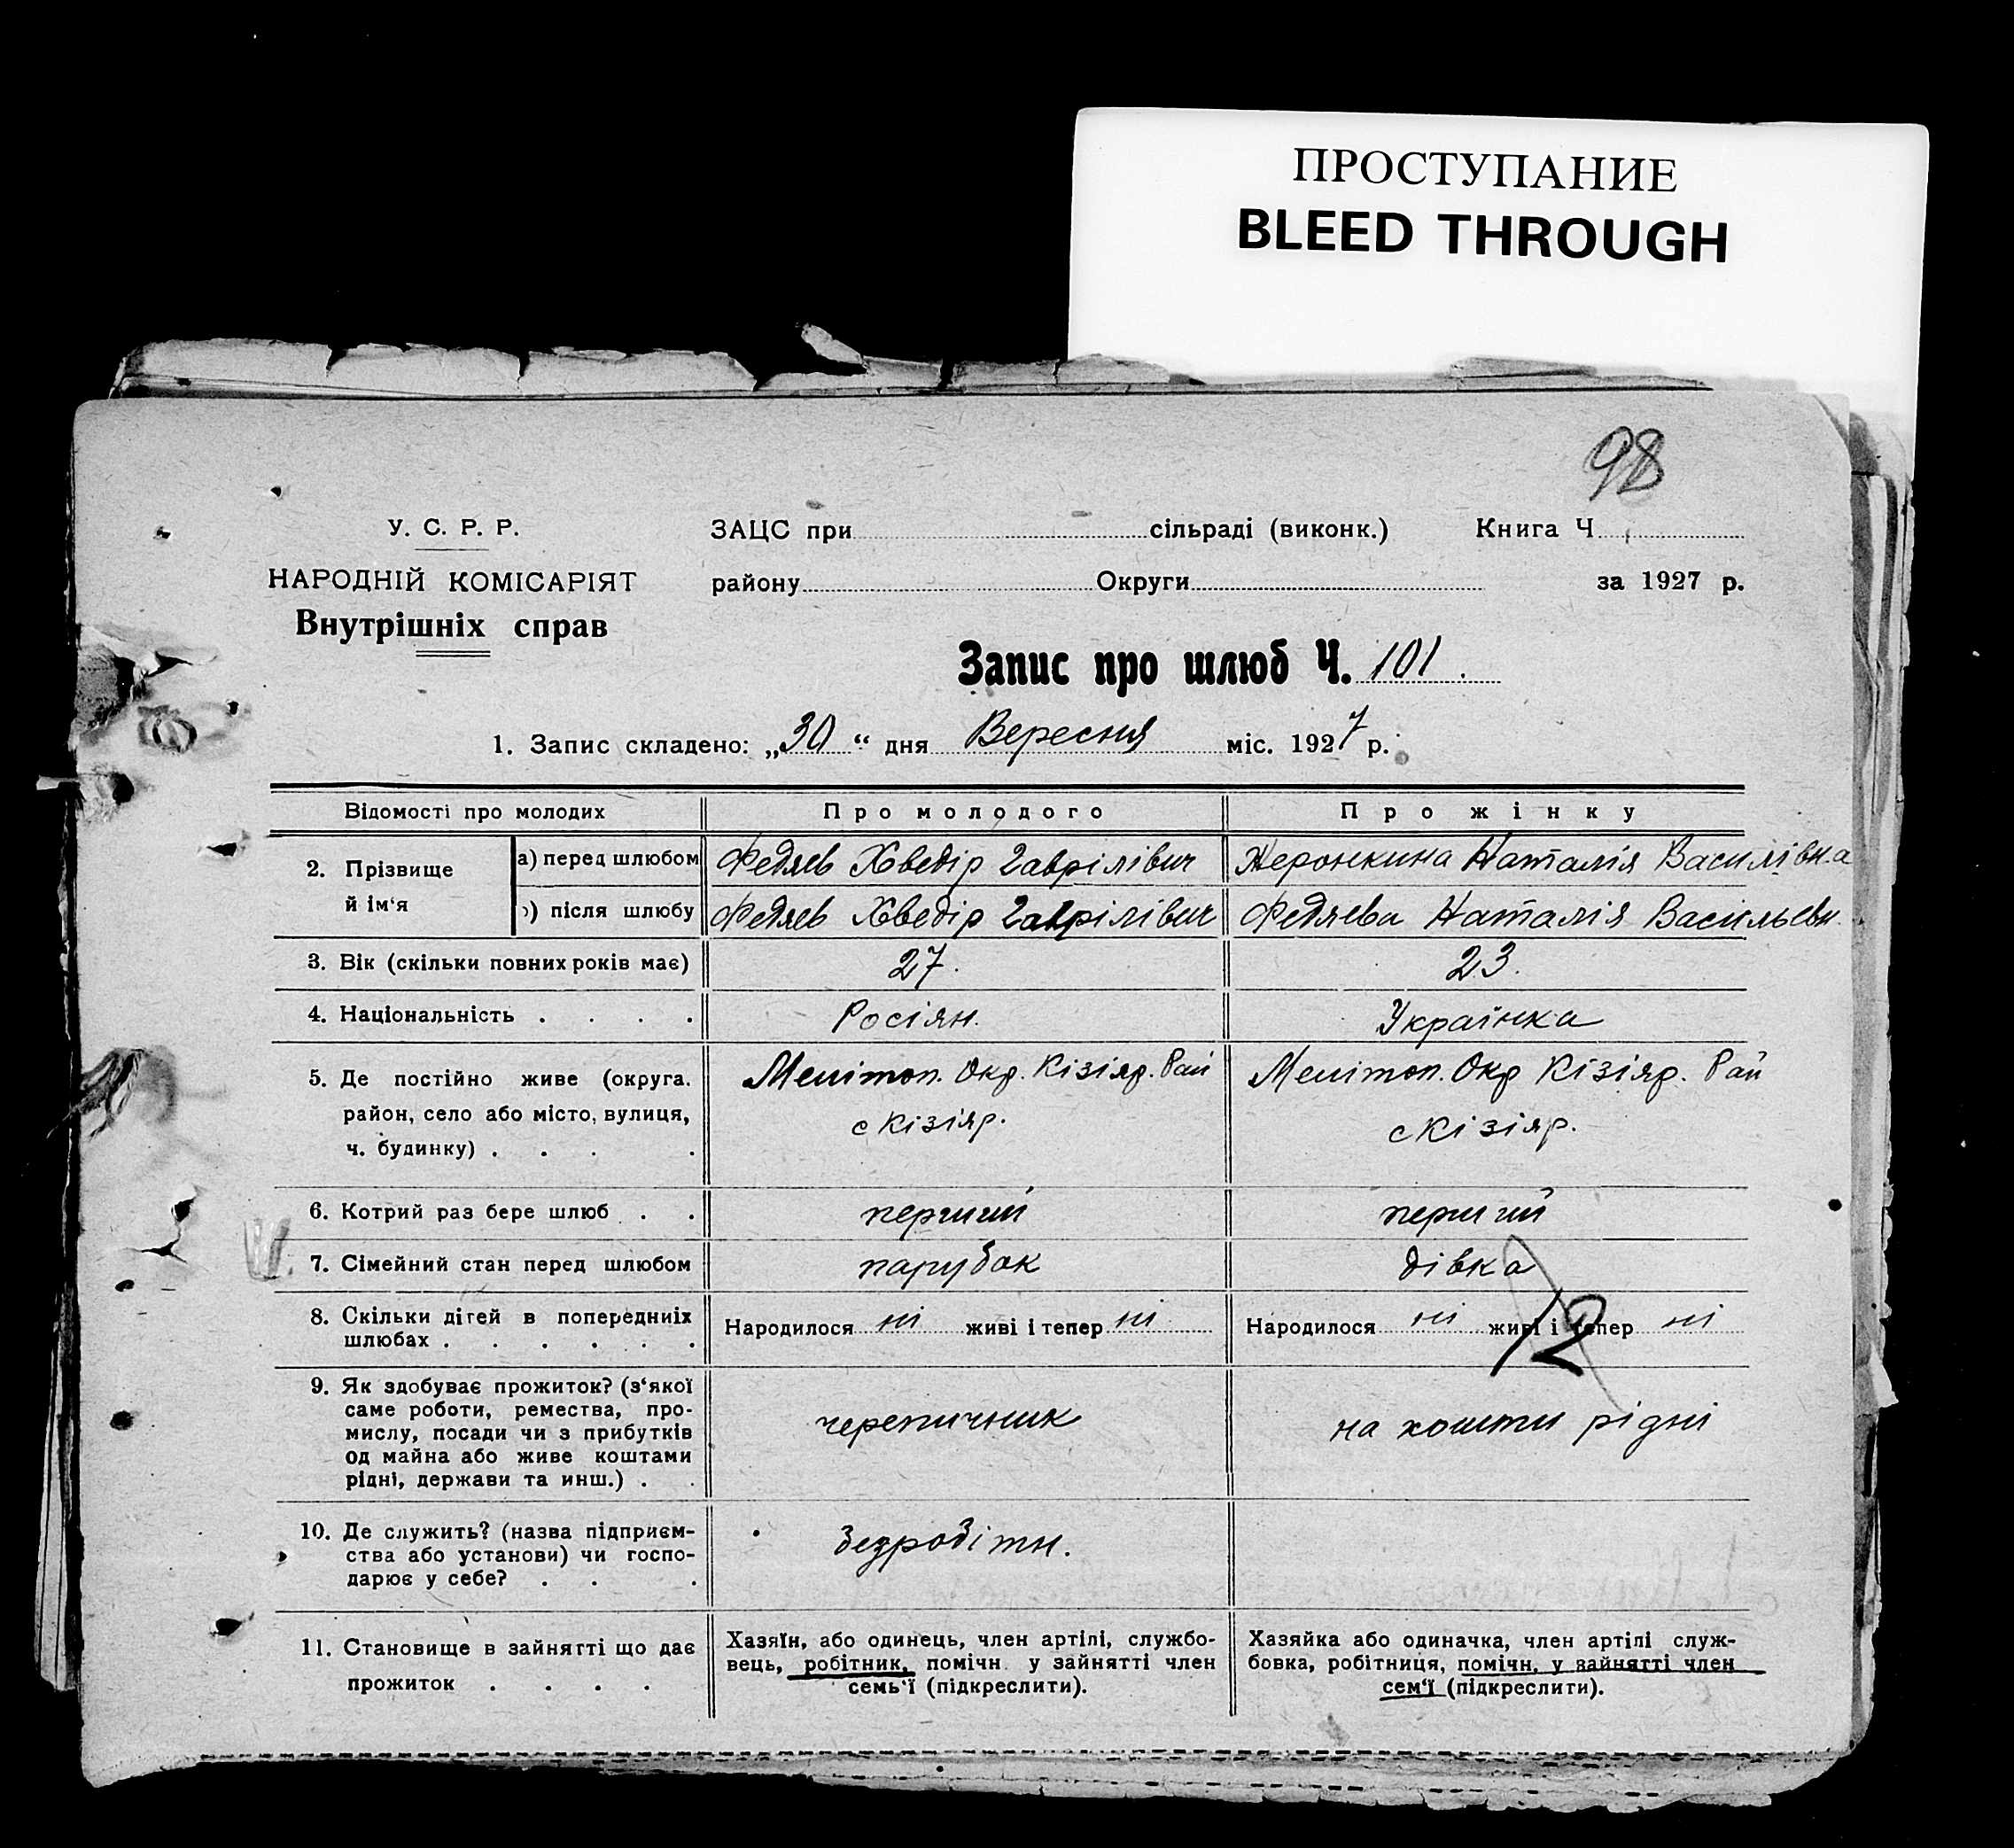 ПРОСТУПАНИЕ
BLEED THROUGH
98
У. С. Р. Р.
НАРОДНІЙ КОМІСАРІЯТ
Внутрішніх справ
ЗАЦС при сільраді (виконк.) Книга Ч.
району Округи за 1927 р.
Запис про шлюб Ч. 101.
1. Запис складено: „30“ дня Вересня міс. 1927 р.
Відомості про молодих Про молодого Про жінку
2. Прізвище й ім‘я
а) перед шлюбом Федяев Хведір Гаврілівич Жеронкина Наталія Василівна
б) після шлюбу Федяев Хведір Гаврілівич Федяева Наталія Васильевн.
3. Вік (скільки повних років має) 27. 23.
4. Національність . . . . Росіян. Українка
5. Де постійно живе (округа. район, село або місто, вулиця, ч. будинку) . . . .
Мелітоп. Окр. Кізіяр. Рай
с Кізіяр.
Мелітоп. Окр Кізіяр. Рай
с Кізіяр.
6. Котрий раз бере шлюб . . перший перший
7. Сімейний стан перед шлюбом парубок дівка
8. Скільки дітей в попередниіх
шлюбах . . . . . .
Народилося ні живі і тепер ні
Народилося ні живі і тепер ні
12
9. Як здобуває прожиток? (з‘якої
саме роботи, ремества, про-
мислу, посади чи з прибутків
од майна або живе коштами
рідні, держави та инш.) . .
черепичник
на кошти рідні
10. Де служить? (назва підприєм-
ства або установи) чи госпо-
дарює у себе? . . .
безробітн.
11. Становище в зайнятті що дає
прожиток . . . .
Хазяїн, або одинець, член артілі, службо-
вець, робітник, помічн. у зайнятті член
семь‘ї (підкреслити).
Хазяйка або одиначка, член артілі служ-
бовка, робітниця, помічн. у зайнятті член
сем‘ї (підкреслити).